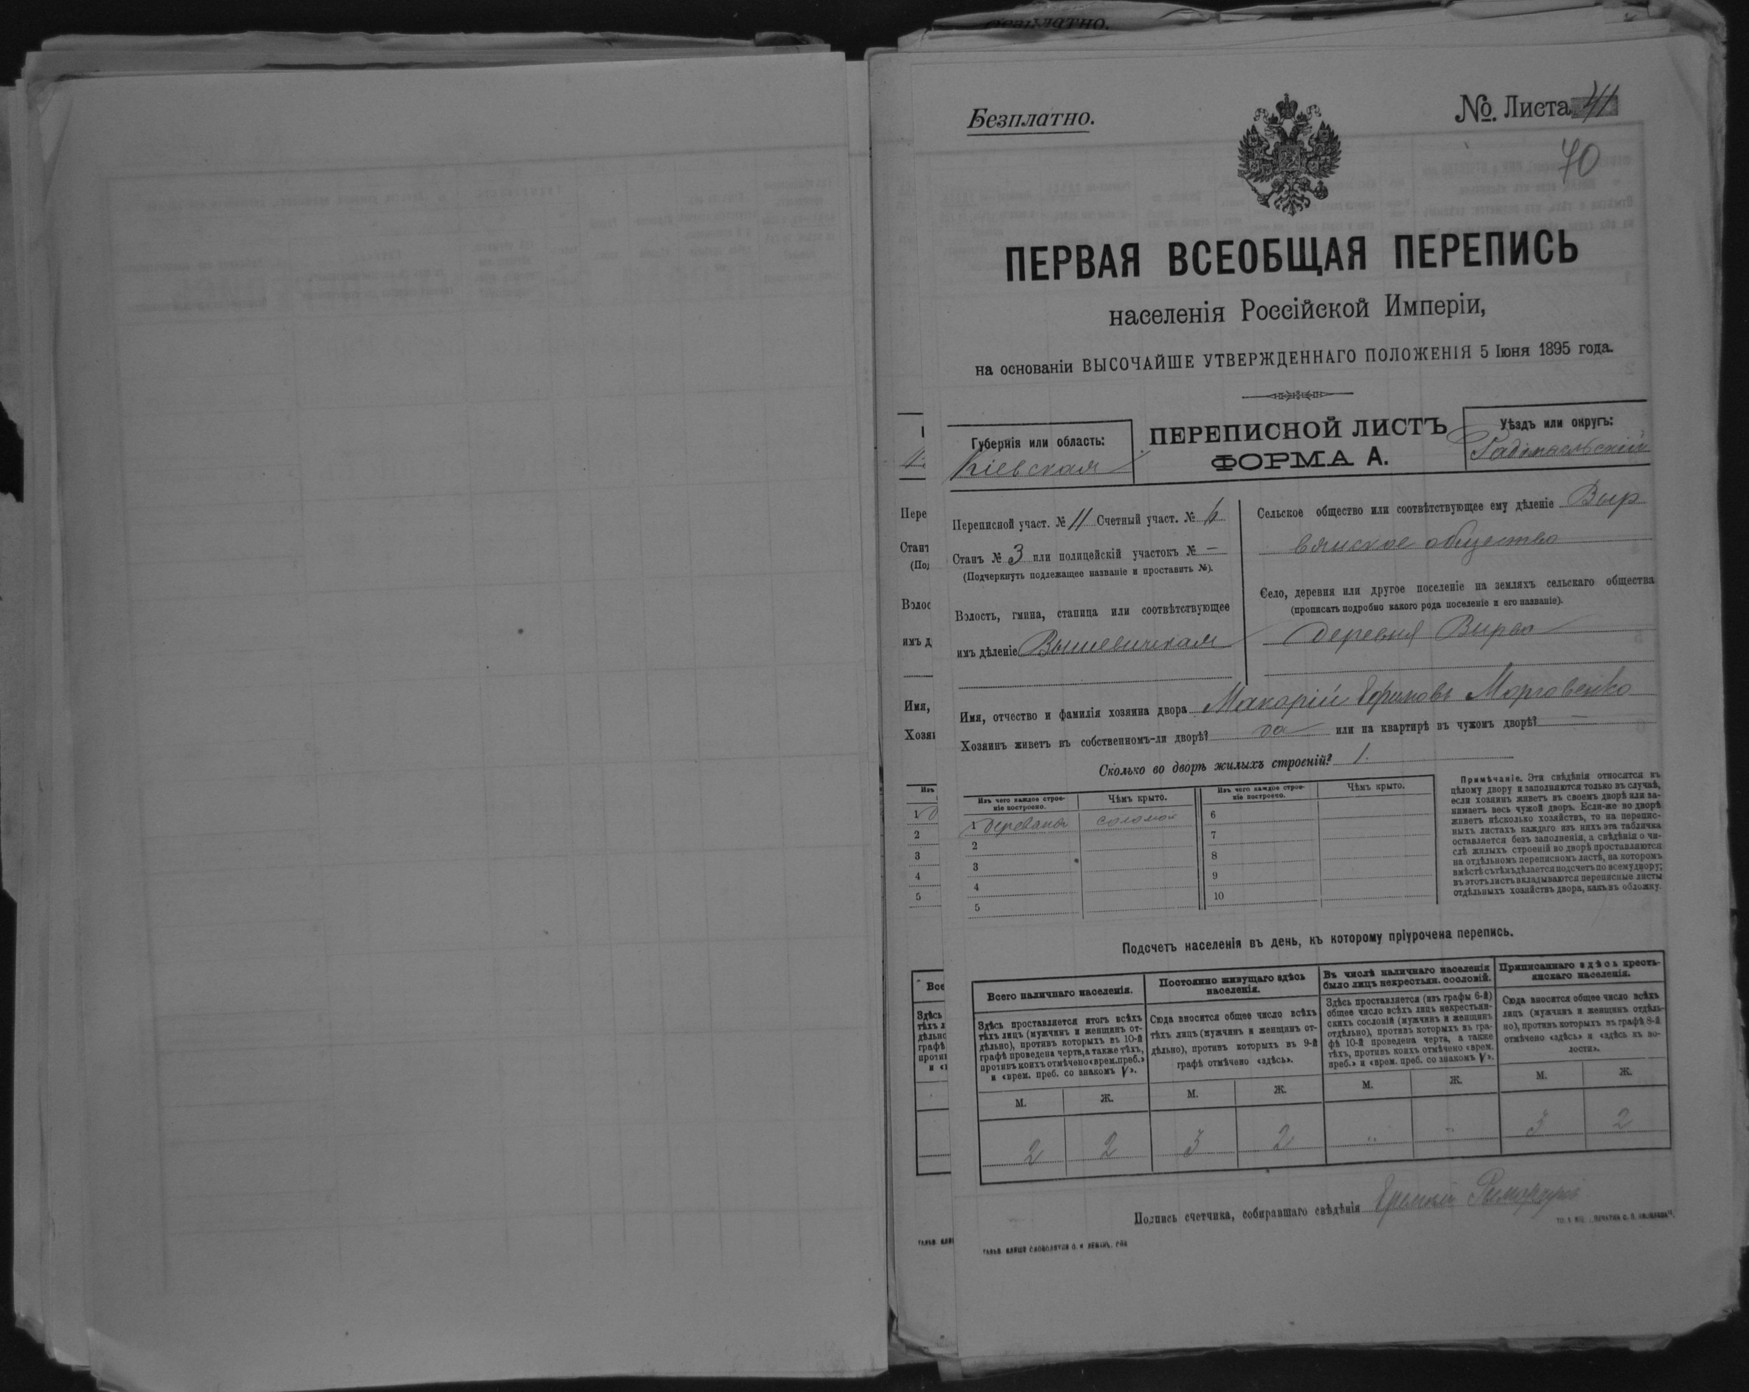 Безплатно.
№. Листа 41
70
ПЕРВАЯ ВСЕОБЩАЯ ПЕРЕПИСЬ
населенія Россійской Имперіи,
на основаніи ВЫСОЧАЙШЕ УТВЕРЖДЕННАГО ПОЛОЖЕНІЯ 5 Іюня 1895 года.
Губернія или область:
Кіевская
ПЕРЕПИСНОЙ ЛИСТЪ
ФОРМА А.
Уѣздъ или округъ:
Радомысльскій
Переписной участ. № 11 Счетный участ. №
Станъ № 3 или полицейскій участокъ № —
(Подчеркнуть подлежащее названіе и проставить №).
Волость, гмина, станица или соотвѣтствующее
имъ дѣленіе Вышевичская
Сельское общество или соотвѣтствующее ему дѣленіе Выр
вянское общество
Село, деревня или другое поселеніе на земляхъ сельскаго общества
(прописать подробно какого рода поселеніе и его названіе).
деревня Вырва
Имя, отчество и фамилія хозяина двора Макарій Ефимовъ
Хозяинъ живетъ въ собственномъ-ли дворѣ? да или на квартирѣ въ чужомъ дворѣ? —
Сколько во дворѣ жилыхъ строеній? 1.
Изъ чего каждое строеніе построено.
Чѣмъ крыто.
Изъ чего каждое строеніе построено.
Чѣмъ крыто.
1 дерева солом
2
3
4
5
6
7
8
9
10
Примѣчаніе. Эти свѣдѣнія относятся къ
цѣлому двору и заполняются только въ случаѣ,
если хозяинъ живетъ въ своемъ дворѣ или за-
нимаетъ весь чужой дворъ. Если-же во дворѣ
живетъ нѣсколько хозяйствъ, то на перепис-
ныхъ листахъ каждаго изъ нихъ эта табличка
оставляется безъ заполненія, а свѣдѣнія о чи-
слѣ жилыхъ строеній во дворѣ проставляются
на отдѣльномъ переписномъ листѣ, на которомъ
вмѣстѣ съ тѣмъ дѣлается подсчетъ по всему двору;
въ этотъ листъ вкладываются переписные листы
отдѣльныхъ хозяйствъ двора, какъ въ обложку.
Подсчетъ населенія въ день, къ которому пріурочена перепись.
Всего наличнаго населенія.
Здѣсь проставляется итогъ всѣхъ
тѣхъ лицъ (мужчинъ и женщинъ от-
дѣльно), противъ которыхъ въ 10-й
графѣ проведена черта, а также тѣхъ,
противъ коихъ отмѣчено «врем. преб.»
и «врем. преб. со знакомъ V».
Постоянно живущаго здѣсь
населенія.
Сюда вносится общее число всѣхъ
тѣхъ лицъ (мужчинъ и женщинъ от-
дѣльно), противъ которыхъ въ 9-й
графѣ отмѣчено «здѣсь».
Въ числѣ наличнаго населенія
было лицъ некрестьян. сословій.
Здѣсь проставляется (изъ графы 6-й)
общее число всѣхъ лицъ некрестьян-
скихъ сословій (мужчинъ и женщинъ
отдѣльно), противъ которыхъ въ гра-
фѣ 10-й проведена черта, а также
тѣхъ, противъ коихъ отмѣчено «врем.
преб.» и «врем. преб. со знакомъ V».
Приписаннаго здѣсь кресть-
янскаго населенія.
Сюда вносится общее число всѣхъ
лицъ (мужчинъ и женщинъ отдѣль-
но), противъ которыхъ въ графѣ 8-й
отмѣчено «здѣсь» и «здѣсь въ во-
лости».
М. Ж. М. Ж. М. Ж. М. Ж.
2 2 3 2 " " 3 2
Подпись счетчика, собиравшаго свѣдѣнія